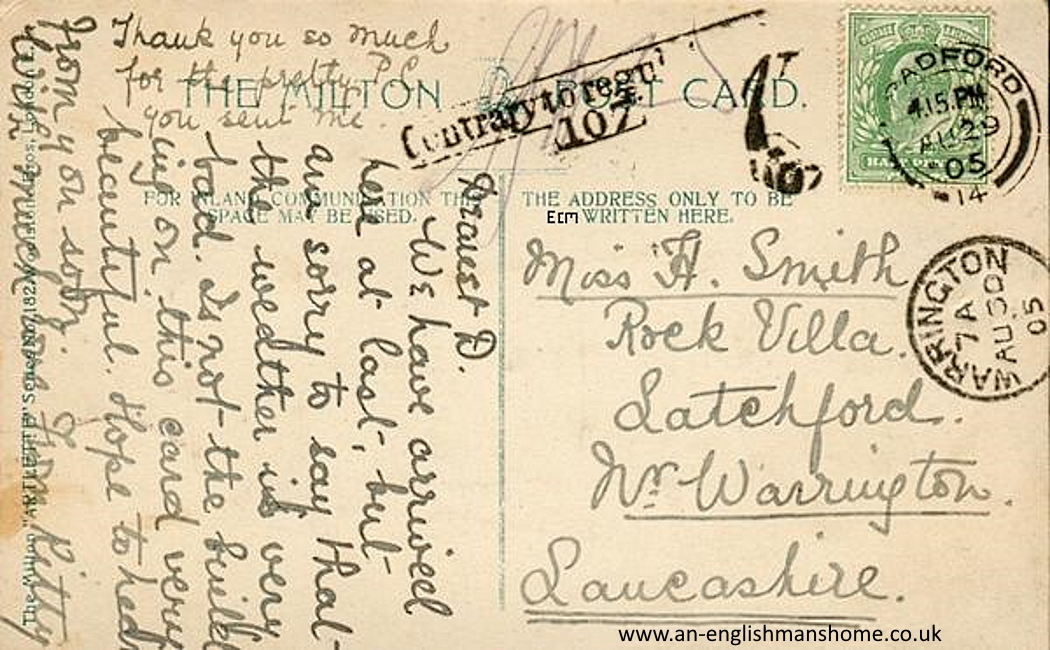 Thank you so much
for the pretty P.C.
you sent me.
THE MILTON POST CARD.
Contrary to regns
1OZ.
1
FOR INLAND COMMUNICATION THE
SPACE MAY BE USED.
THE ADDRESS ONLY TO BE
WRITTEN HERE.
Dearest D.
We have arrived
here at last, but
are sorry to say that
the weather is very
bad. Is not the build
ing on this card very
beautiful. Hope to hear
from you soon.
With much love from Kitty
The Milton "ARTLETTE" Series No. 182 Woolstone Bros, London
Miss H. Smith
Rock Villa.
Latchford.
Nr. Warrington.
Lancashire.
HALFPENNY
4.15 PM
AU 29
05
14
WARRINGTON
7 A
AU 30
05
Ecm
www.an-englishmanshome.co.uk